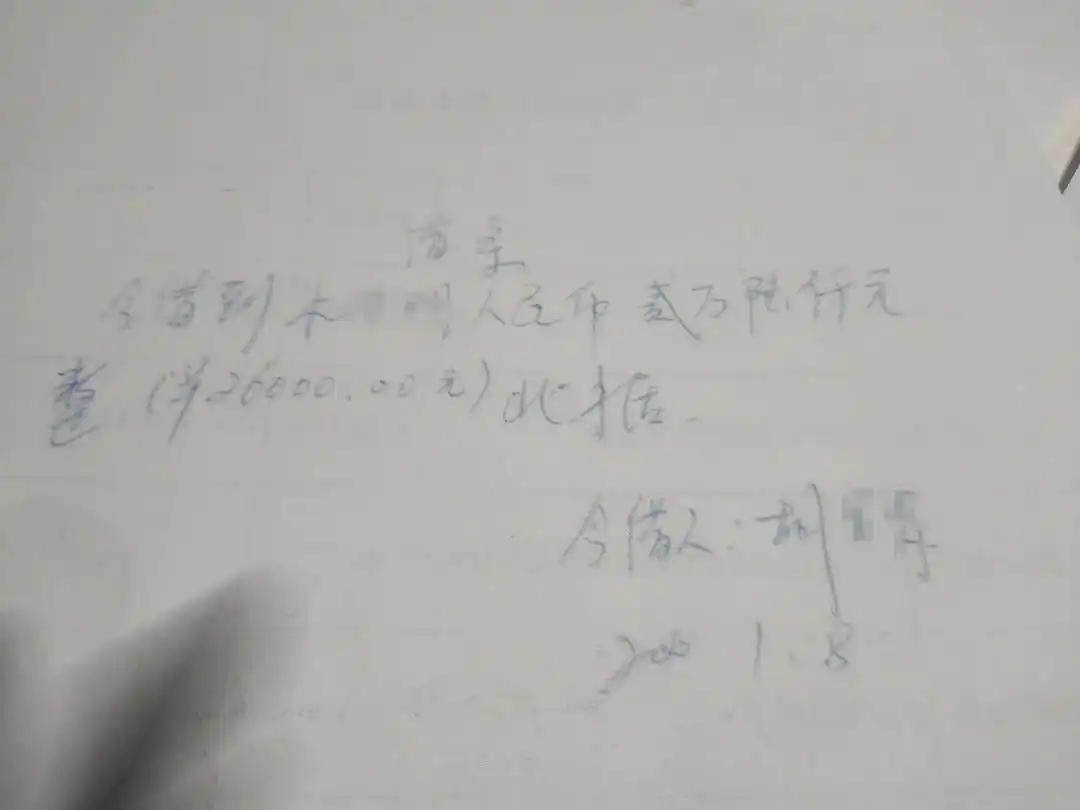 借条
今借到 人民币贰万陆仟元
整(¥26000.00元)此据.
今借人:胡
200 1.8